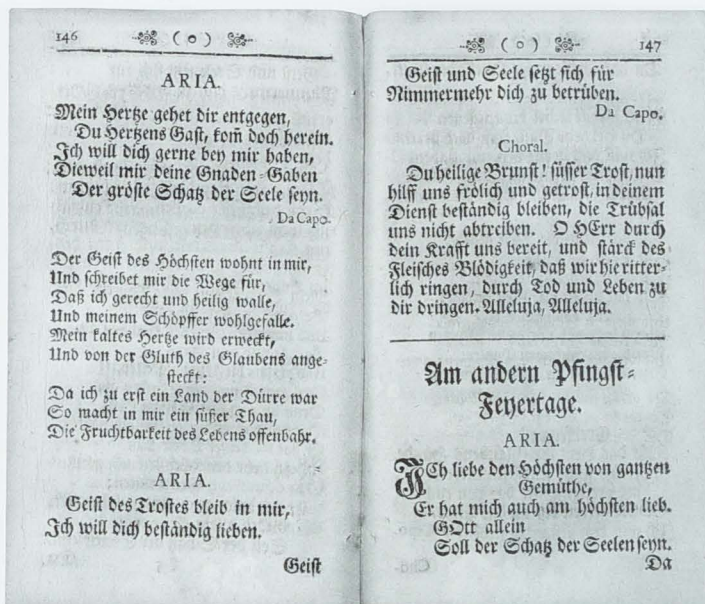 146 ( o )
ARIA.
Mein Hertze gehet dir entgegen,
Du Hertzens Gast, kom̃ doch herein.
Ich will dich gerne bey mir haben,
Dieweil mir deine Gnaden-Gaben
Der gröste Schatz der Seele seyn.
Da Capo.
Der Geist des Höchsten wohnt in mir,
Und schreibet mir die Wege für,
Daß ich gerecht und heilig walle,
Und meinem Schöpffer wohlgefalle.
Mein kaltes Hertze wird erweckt,
Und von der Gluth des Glaubens ange-
steckt:
Da ich zu erst ein Land der Dürre war
So macht in mir ein süßer Thau,
Die Fruchtbarkeit des Lebens offenbahr.
ARIA.
Geist des Trostes bleib in mir,
Ich will dich beständig lieben.
Geist
( o ) 147
Geist und Seele setzt sich für
Nimmermehr dich zu betrüben.
Da Capo.
Choral.
Du heilige Brunst! süsser Trost, nun
hilff uns frölich und getrost, in deinem
Dienst beständig bleiben, die Trübsal
uns nicht abtreiben. O HErr durch
dein Krafft uns bereit, und stärck des
Fleisches Blödigkeit, daß wir hie ritter-
lich ringen, durch Tod und Leben zu
dir dringen. Alleluja, Alleluja.
Am andern Pfingst-
Feyertage.
ARIA.
ICh liebe den Höchsten von gantzen
Gemüthe,
Er hat mich auch am höchsten lieb.
GOtt allein
Soll der Schatz der Seelen seyn.
Da